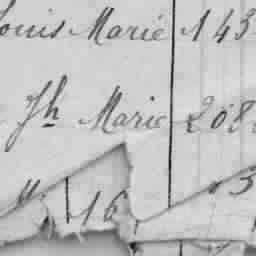 Louis Marie 143
Jh Marie 208
16 3